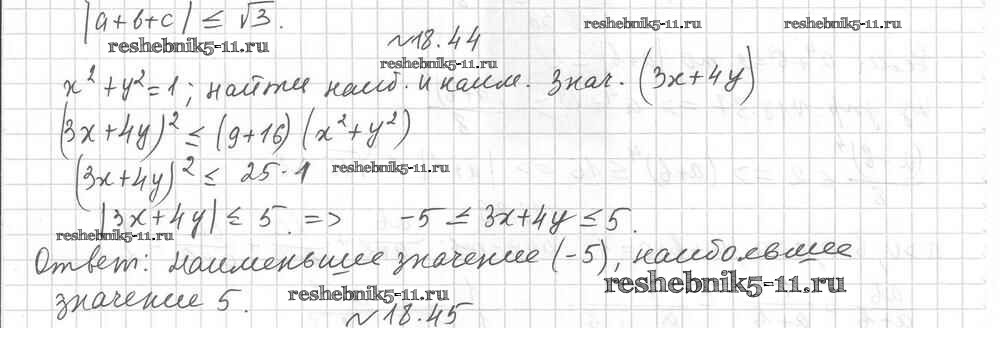 |a+b+c| ≤ √3.
reshebnik5-11.ru
reshebnik5-11.ru
reshebnik5-11.ru
~18.44
reshebnik5-11.ru
x²+y²=1; найти наиб. и наим. знач. (3x+4y)
(3x+4y)² ≤ (9+16)(x²+y²)
(3x+4y)² ≤ 25·1
reshebnik5-11.ru
|3x+4y| ≤ 5. => -5 ≤ 3x+4y ≤ 5.
reshebnik5-11.ru
Ответ: наименьшее значение (-5), наибольшее
reshebnik5-11.ru
значение 5.
reshebnik5-11.ru
~18.45